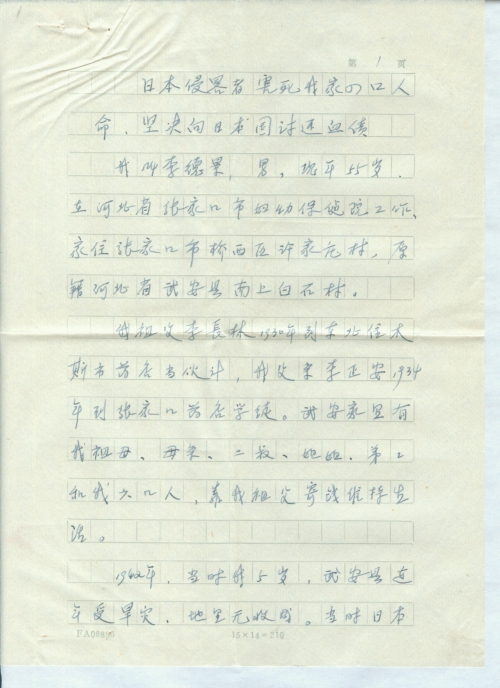 第 1 页
日本侵略者害死我家四口人
命，坚决向日本国讨还血债
我叫李德果，男，现年55岁，
在河北省张家口市妇幼保健院工作，
家住张家口市桥西区许家庄村，原
籍河北省武安县南上白石村。
我祖父李長林1930年到东北佳木
斯市药店当伙计，我父亲李正安1934
年到张家口药店学徒。武安家里有
我祖母、母亲、二叔、姐姐、弟
和我六口人，靠我祖父寄钱维持生
活。
1942年，当时我5岁，武安县连
年受旱灾，地里无收成。当时日本
15×14=210